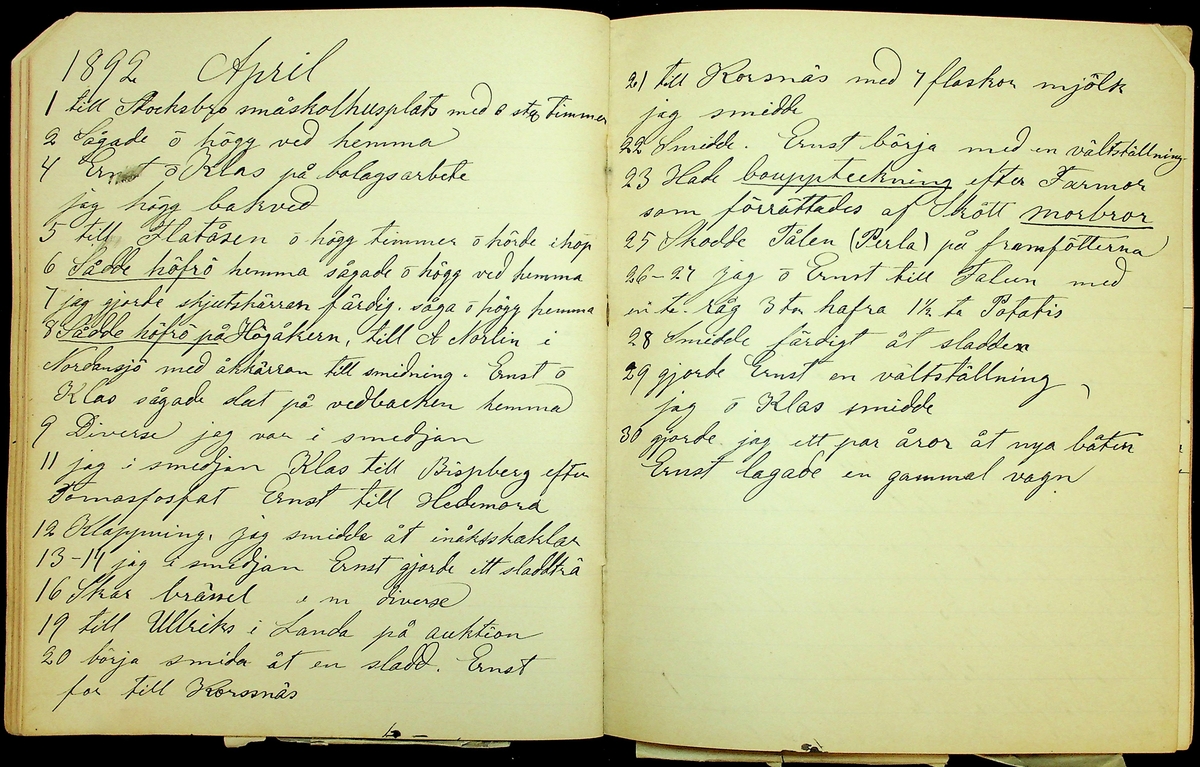 1892 April
1 till Stocksbro småskolhusplats med 6 st timmer
2 Sågade o högg ved hemma
4 Ernst o Klas på bolagsarbete
jag högg bakved
5 till Flatåsen o högg timmer o hörde ihop
6 Sådde höfrö hemma sågade o högg ved hemma
7 jag gjorde skjutskärran färdig. såga o högg hemma
8 Sådde höfrö på Högåkern, till A Norlin i
Nordansjö med åkkärran till smidning. Ernst o
Klas sågade slut på vedbacken hemma
9 Diverse jag var i smedjan
11 jag i smedjan Klas till Bispberg efter
Tomasfosfat Ernst till Hedemora
12 Klappning. jag smidde åt
13-14 jag i smedjan Ernst gjorde ett sladdträ
16 Skar brännel e m diverse
19 till Ullriks i Landa på auktion
20 börja smida åt en sladd. Ernst
for till Korssnäs
21 till Korsnäs med 7 flaskor mjölk
jag smidde
22 Smidde. Ernst börja med en vältställning
23 Hade bouppteckning efter Farmor
som förrättades af Skött morbror
25 Skodde Fålen (Perla) på framfötterna
26-27 jag o Ernst till Falun med
en t:a råg 3 t:a hafra 1½ ta Potatis
28 Smidde färdigt åt sladden
29 gjorde Ernst en vältställning
jag o Klas smidde
30 gjorde jag ett par åror åt nya båten
Ernst lagade en gammal vagn